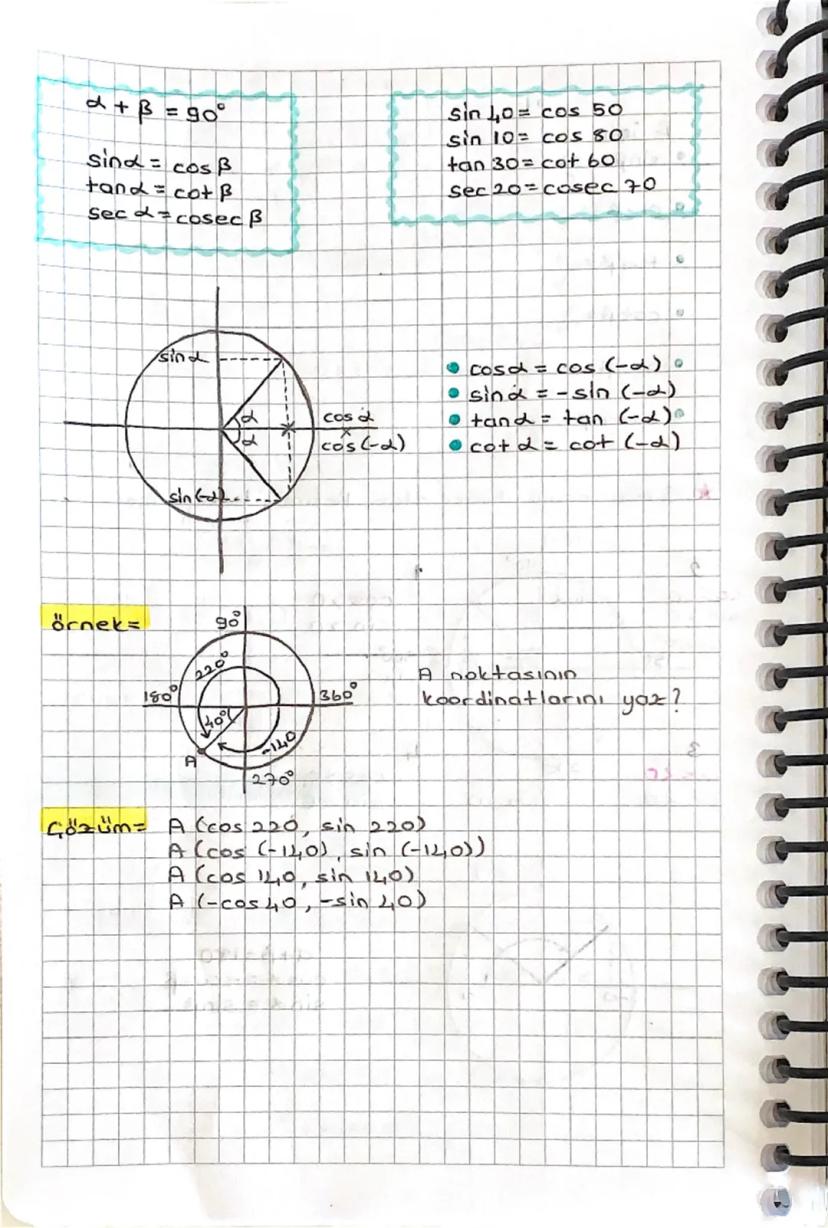 α + β = 90°
sinα = cosβ
tanα = cotβ
sec α = cosec β
sin 40 = cos 50
sin 10 = cos 80
tan 30 = cot 60
sec 20 = cosec 70
sinα
α
α
cos α
cos (-α)
sin(-α)
• cosα = cos (-α)
• sinα = -sin (-α)
• tanα = tan (-α)
• cotα = cot (-α)
örnek=
90°
220°
180°
360°
40°
-140
A
270°
A noktasının
koordinatlarını yaz?
Çözüm=
A (cos 220, sin 220)
A (cos (-140), sin (-140))
A (cos 140, sin 140)
A (-cos 40, -sin 40)